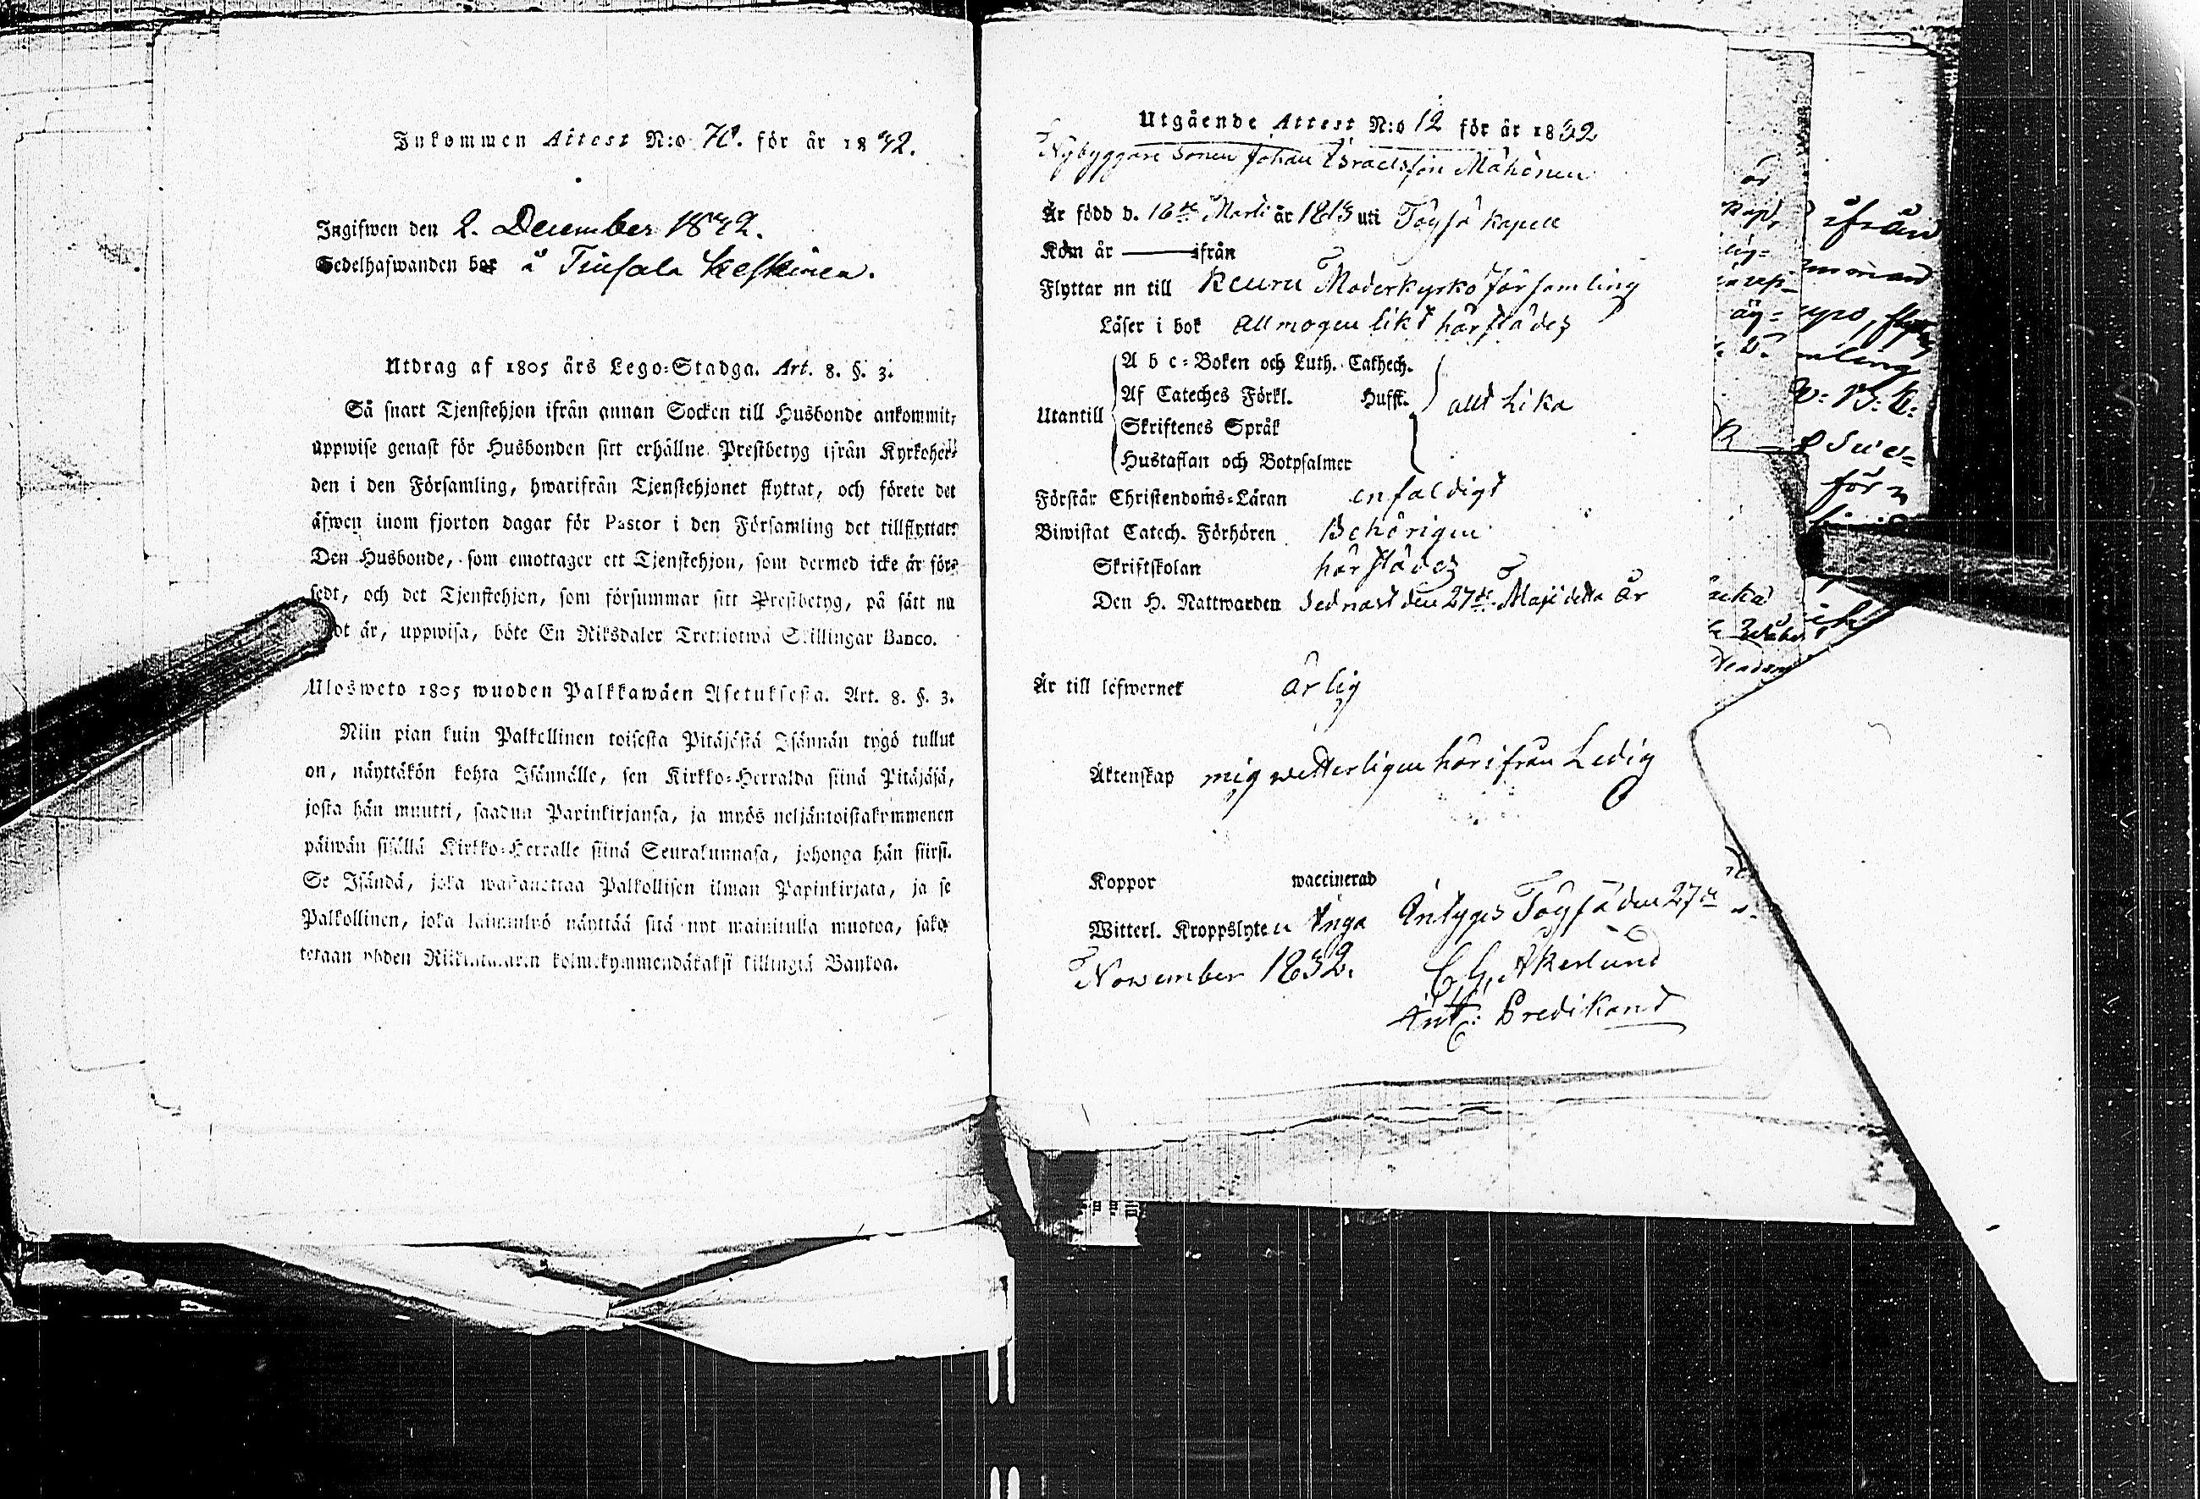 Inkommen Attest N:o 70. för år 1832.
Ingifwen den 2. December 1832.
Sedelhafwanden bor å Tiusala Keskinen.
Utdrag af 1805 års Lego-Stadga. Art. 8. §. 3.
Så snart Tjenstehjon ifrån annan Socken till Husbonde ankommit,
uppwise genast för Husbonden sitt erhållne Prestbetyg ifrån Kyrkoher-
den i den Församling, hwarifrån Tjenstehjonet flyttat, och förete det
äfwen inom fjorton dagar för Pastor i den Församling det tillflyttat.
Den Husbonde, som emottager ett Tjenstehjon, som dermed icke är för-
sedt, och det Tjenstehjon, som försummar sitt Prestbetyg, på sätt nu
är, uppwisa, böte En Riksdaler Trettiotwå Skillingar Banco.
Ulosweto 1805 wuoden Palkkawäen Asetuksesta. Art. 8. §. 3.
Niin pian kuin Palkollinen toisesta Pitäjästä Isännän tygö tullut
on, näyttäkön kohta Isännälle, sen Kirkko-Herralda siinä Pitäjäsä,
josta hän muutti, saadun Papinkirjansa, ja myös neljäntoistakymmenen
päiwän sisällä Kirkko-Herralle siinä Seurakunnasa, johonga hän siirsi.
Se Isändä, joka wastanottaa Palkollisen ilman Papinkirjata, ja se
Palkollinen, joka laiminlyö näyttää sitä nyt mainitulla muotoa, sako-
tetaan yhden Riikintalarin kolmekymmendäkaksi killingiä Bankoa.
Utgående Attest N:o 12 för år 1832
Nybyggare Sonen Johan Israelsson Mähönen
Är född d. 16de Martii år 1813 uti Töysä Kapell
Kom år —— ifrån
Flyttar nn till Keuru Moderkyrko församling
Läser i bok allmogen likt härstädes
A b c-Boken och Luth. Cathech.
Af Cateches Förkl. Hufft.
Utantill allt Lika
Skriftenes Språk
Hustaflan och Botpsalmer
Förstår Christendoms-Läran enfaldigt
Biwistat Catech. Förhören Behörigen
Skriftskolan härstädes
Den H. Nattwarden sednast den 27de Maji detta år
Är till lefwernet ärlig
Äktenskap mig wetterligen härifrån Ledig
Koppor waccinerad
Witterl. Kroppslyten Inga Intygas Töysä den 27de
November 1832. C. G. Åkerlund
Predikant